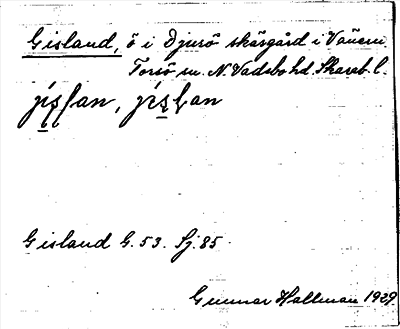 Gisland, ö i Djurö skärgård i Vänern.
Torsö sn. N. Vadsbo hd. Skarab. l.
Gisland G. 53. Sj. 85.
Gunnar Hallman 1929.